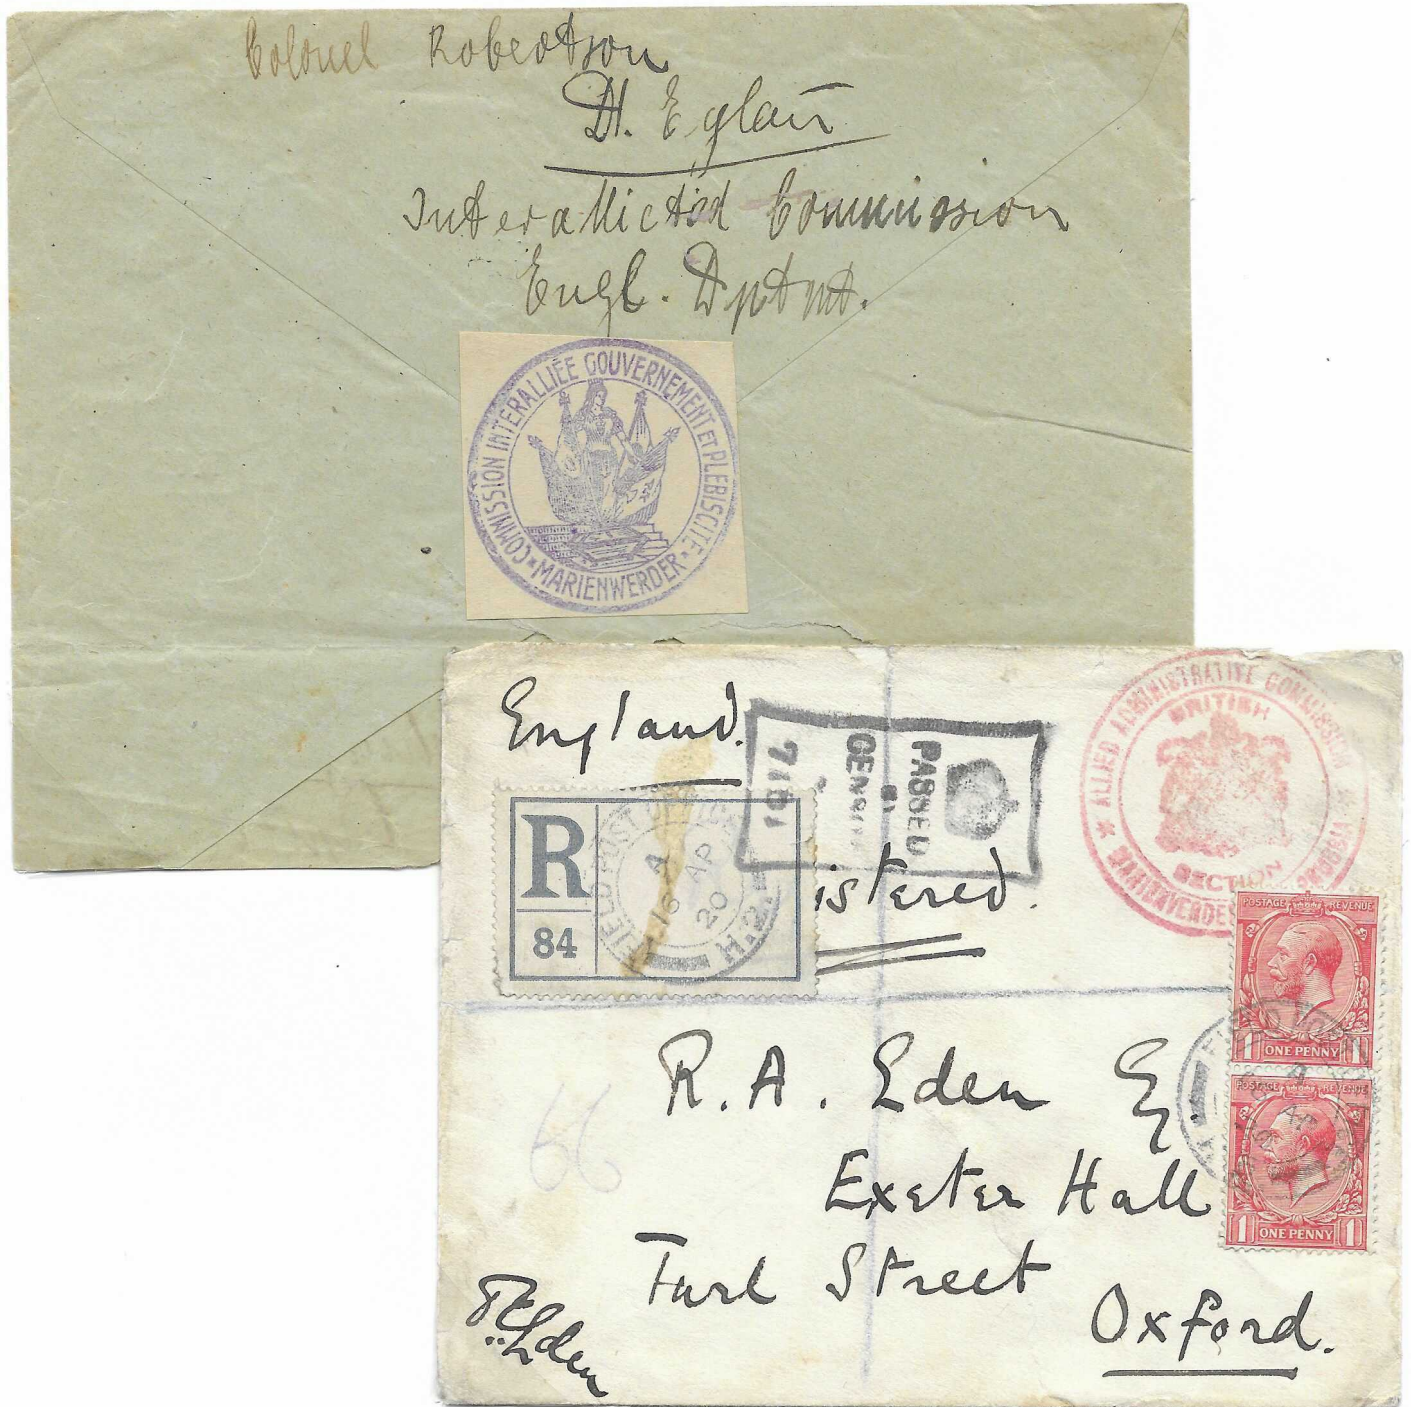 Colonel Robertson
Dt. Eglau
Interallictid Commission
Engl. Dptmt.
COMMISSION INTERALLIÉE GOUVERNEMENT ET PLEBISCITE
* MARIENWERDER *
England.
PASSED
BY
CENSOR
ALLIED ADMINISTRATIVE COMMISSION
BRITISH
SECTION
R
84
FIELD POST OFFICE
A
16 AP
20
H.2.
istered.
POSTAGE REVENUE
1 ONE PENNY 1
POSTAGE REVENUE
1 ONE PENNY 1
R. A. Eden Eq.
Exeter Hall
Turl Street
Oxford.
66
Eden